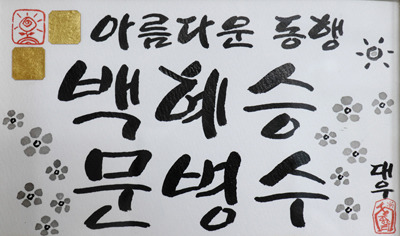 아름다운 동행
백혜승
문병수
대우